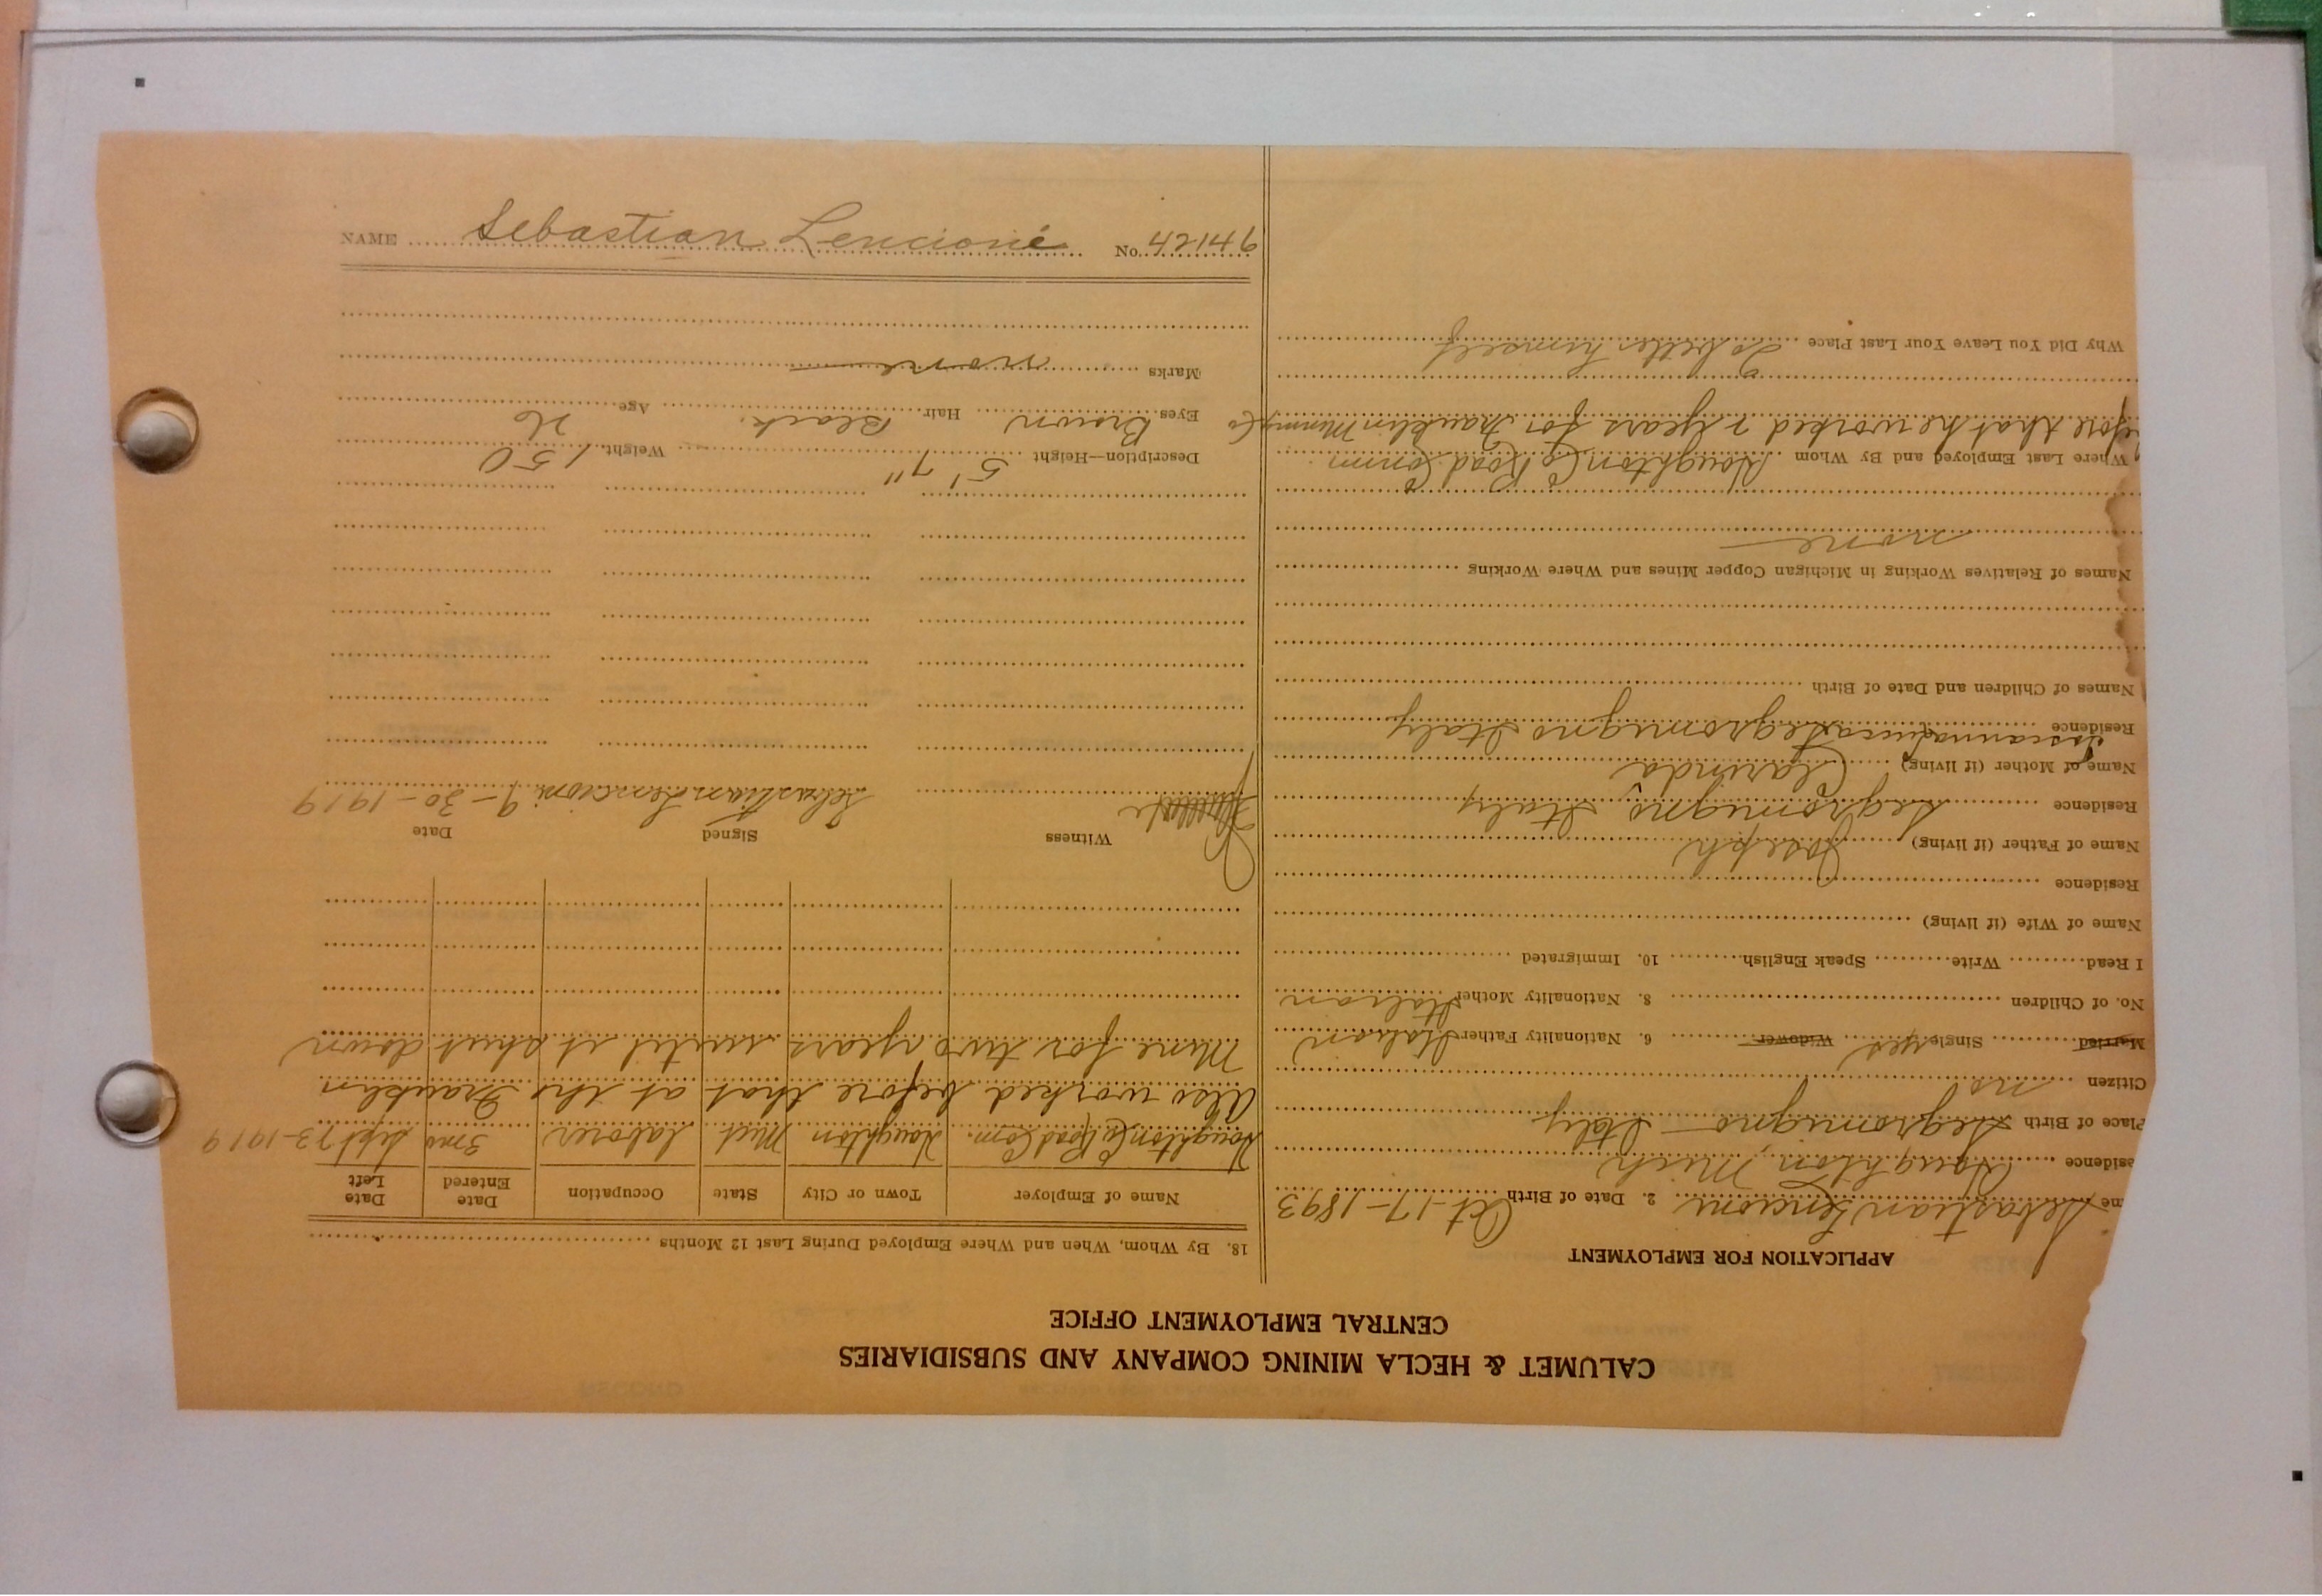 CALUMET & HECLA MINING COMPANY AND SUBSIDIARIES
CENTRAL EMPLOYMENT OFFICE
APPLICATION FOR EMPLOYMENT
me Sebastian Lencioni 2. Date of Birth Oct-17-1893
esidence Houghton, Mich
Place of Birth Segromigno Italy
Citizen no
Married Single yes Widower 6. Nationality Father Italian
No. of Children 8. Nationality Mother Italian
I Read Write Speak English 10. Immigrated
Name of Wife (if living)
Residence
Name of Father (if living) Joseph
Residence Segromigno Italy
Name of Mother (if living) Clarinda
Residence Segromigno Italy
Names of Children and Date of Birth
Names of Relatives Working in Michigan Copper Mines and Where Working
none
Where Last Employed and By Whom Houghton Co Road Comm
efore that he worked 2 years for Franklin Mining Co
Why Did You Leave Your Last Place To better himself
18. By Whom, When and Where Employed During Last 12 Months
Name of Employer Town or City State Occupation Date Entered Date Left
Houghton Co Road Com. Houghton Mich laborer 3 mo Sept 23-1919
Also worked before that at the Franklin
Mine for two years until it shut down
Witness Signed Date
Sebastian Lencioni 9-30-1919
Description—Height 5' 7" Weight 150
Eyes Brown Hair Black Age 26
Marks none
NAME Sebastian Lencioni No. 42146